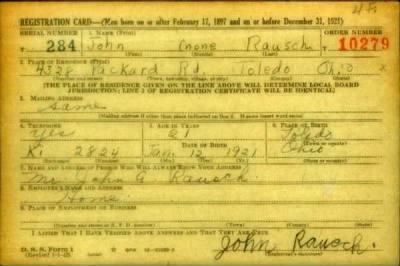 REGISTRATION CARD—(Men born on or after February 17, 1897 and on or before December 31, 1921)
SERIAL NUMBER 1. NAME (Print) ORDER NUMBER
T 284 John (none Rausch T 10279
(First) (Middle) (Last)
2. PLACE OF RESIDENCE (Print)
4328 Packard Rd Toledo Ohio
(Number and street) (Town, township, village, or city) (County) (State)
[THE PLACE OF RESIDENCE GIVEN ON THE LINE ABOVE WILL DETERMINE LOCAL BOARD
JURISDICTION; LINE 2 OF REGISTRATION CERTIFICATE WILL BE IDENTICAL]
3. MAILING ADDRESS
Same
[Mailing address if other than place indicated on line 2. If same insert word same]
4. TELEPHONE 5. AGE IN YEARS 6. PLACE OF BIRTH
Yes 21 Toledo
DATE OF BIRTH (Town or county)
Ki 2824 Jan. 12 1921 Ohio
7. NAME AND ADDRESS OF PERSON WHO WILL ALWAYS KNOW YOUR ADDRESS
Mr. John G Rausch
8. EMPLOYER'S NAME AND ADDRESS
Home
9. PLACE OF EMPLOYMENT OR BUSINESS
I AFFIRM THAT I HAVE VERIFIED ABOVE ANSWERS AND THAT THEY ARE TRUE.
D. S. S. Form 1
John Rausch